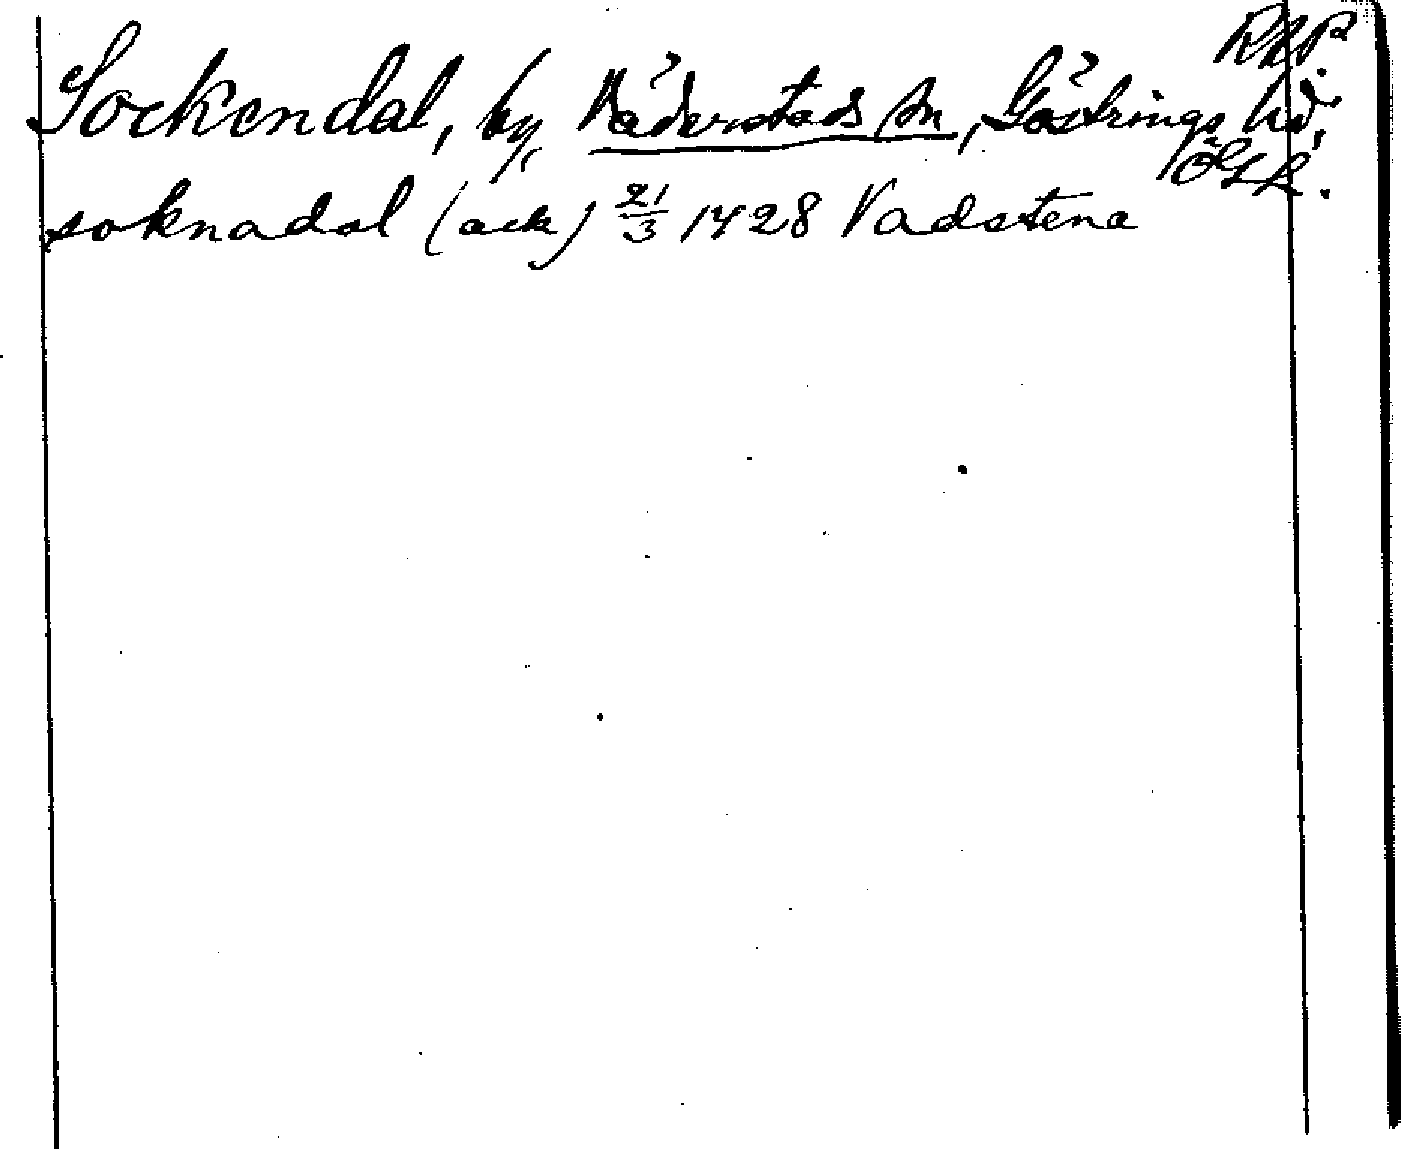 RAP.
Sockendal, by, Väderstads sn, Göstrings hd,
ÖGL.
soknadal (ack) 21/3 1428 Vadstena